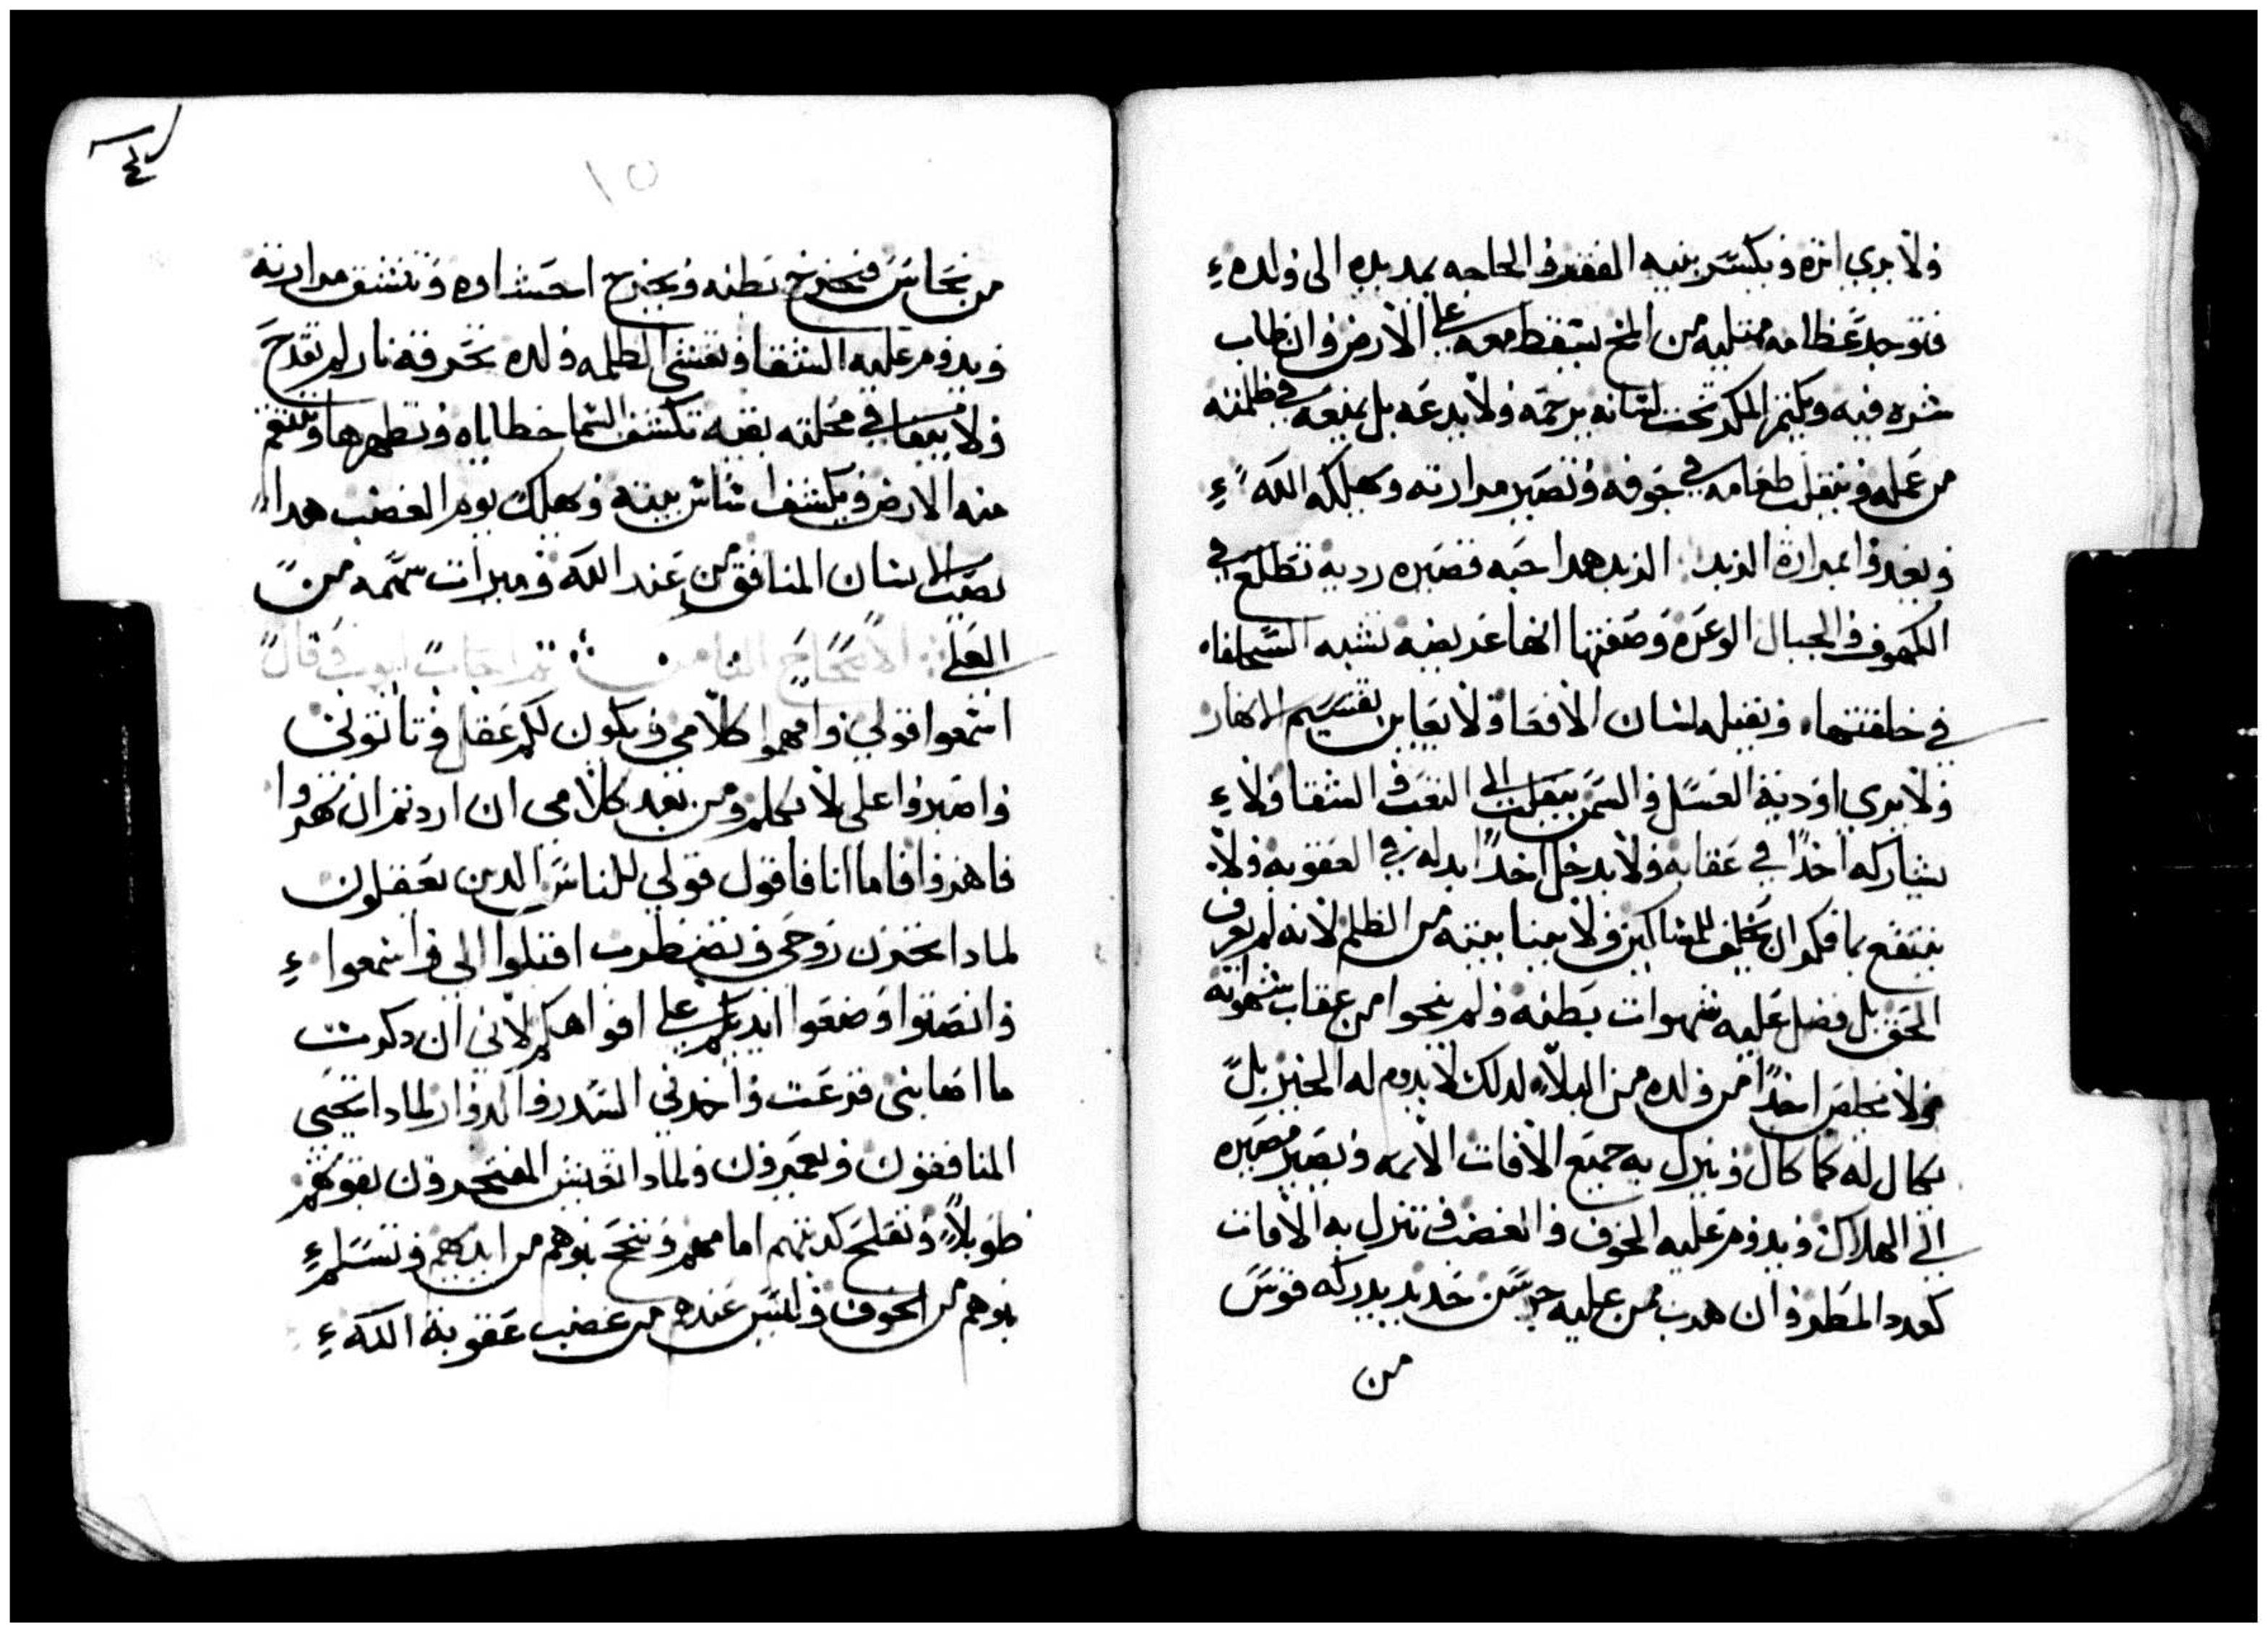 ولا يري اثره ويكسر بنيه الفقر والحاجه يمد يده الى ولده
فتوجد عظامه ممتليه من المخ يسقط معه على الارض وان طاب
شره فيه ويكتم المكر تحت لسانه يرحمه ولا يدعه بل يمنعه في ظلمته
من عمله وينقلب طعامه في جوفه وتصير مرارته ويهلكه الله
الكهوف والجبال الوعره وصفتها انها عريضه تشبه السحلفاه
في خلقتها ويقتله لسان الافعا ولا يعاين تقسيم الانهار
ولا يري اودية العسل والسمن ينقلب الى التعب والشقا ولا
يشاركه احدًا في عقابه ولا يدخل احدًا بدله في العقوبه ولا
ينتفع بما فكر ان يخلف للمساكين ولا يبنا بيته من الظلم لانه لم يعرف
الحق بل فضل عليه شهوات بطنه ولم ينجوا من عقاب شهواته
ولا يخلص احدًا من ولده من البلاء لدلك لا يدوم له الخير بل
يكال له كما كال وينزل به جميع الافات الاتمه ويصير مصيره
الى الهلاك ويدوم عليه الخوف والغضب وتنزل به الافات
كعدد المطر وان هرب من عليه جوشن حديد يدركه قوس
من
من نحاس فتخرج بطنه ويخرج احشاوه وتنشق مرارته
ويدوم عليه الشقا وتغشى الظلمه ولده تحرقه نار لم تقدح
ولا يبقا في محلته بقيه تكشف السما خطاياه وتطهرها وتنتقم
منه الارض ويكشف اساس بيته ويهلك يوم الغضب هدا
نصيب الانسان المنافق من عند الله وميرات سهمه من
العلى الاصحاح الثامن تم اجاب ايوب وقال
اسمعوا قولي وافهموا كلامي ويكون لكم عقل وتاتوني
واصبروا على لاتكلم ومن بعد كلامى ان اردتم ان تهزوا
فاهزوا فاما انا فاقول قولي للناس الدين يعقلون
لمادا تحزن روحى وتضطرب اقبلوا الي واسمعوا
وانصتوا وضعوا ايديكم على افواهكم لاني ان دكرت
ما اصابنى فزعت واخدني السدر والدوار لمادا تحيى
المنافقون ويعمرون ولمادا تعيش المفتخرون بقوتهم
طويلاً وتفلح كديتهم امامهم وتنجح بنوهم من ايديهم وتسلم
بنوهم من الخوف وليس عندهم من غضب عقوبة الله